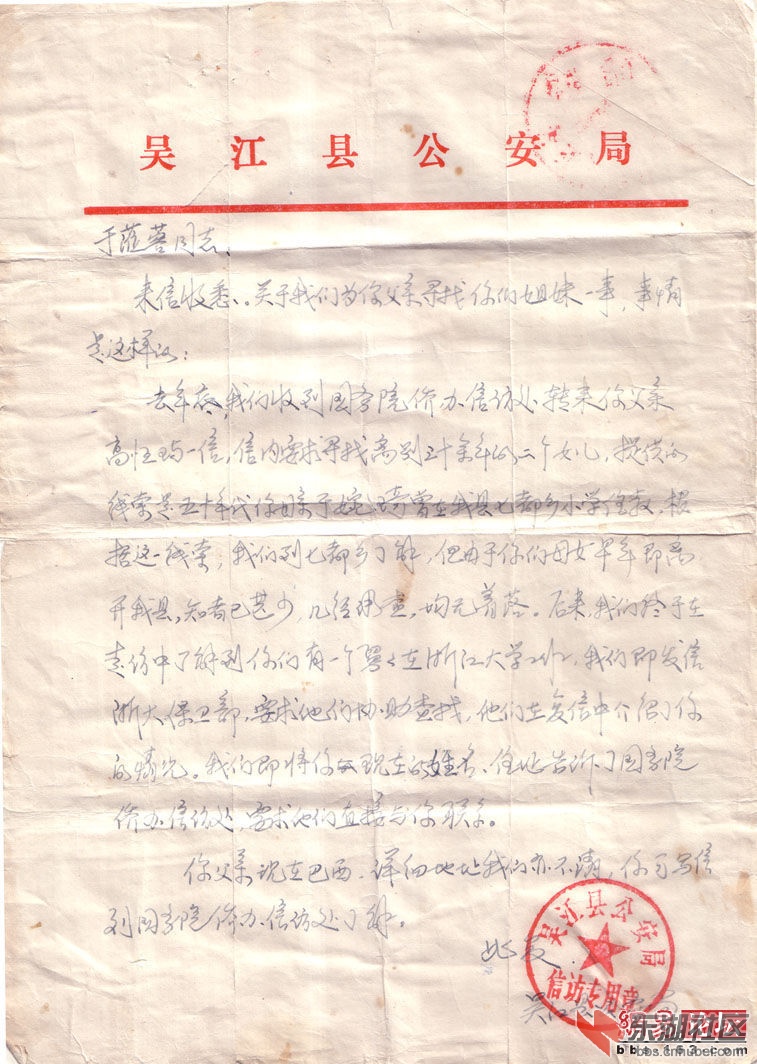 吴江县公安局
于 同志:
来信收悉、关于我们为你父亲寻找你们姐妹一事,事情
是这样的:
去年夜,我们收到国务院侨办信访处转来你父亲
高 一信,信内要求寻找离别三十余年的二个女儿,提供的
线索是五十年代你母亲于婉 曾在我县七都乡小学任教,根
据这一线索,我们到七都乡了解,但由于你们母女早年即离
开我县,知者已甚少,几经调查,均无着落。后来,我们终于在
走访中了解到你们有一个舅舅在浙江大学工作,我们即发信
浙大保卫部,要求他们协助查找,他们在复信中介绍了你
的情况。我们即将你 现在的姓名、住址告诉了国务院
侨办信访处,要求他们直接与你联系。
你父亲现在巴西,详细地址我们亦不清,你可写信
到国务院侨办信访处了解。
此复
吴江县公安局
吴江县公安局
信访专用章
东湖社区
bbs.cnhubei.com